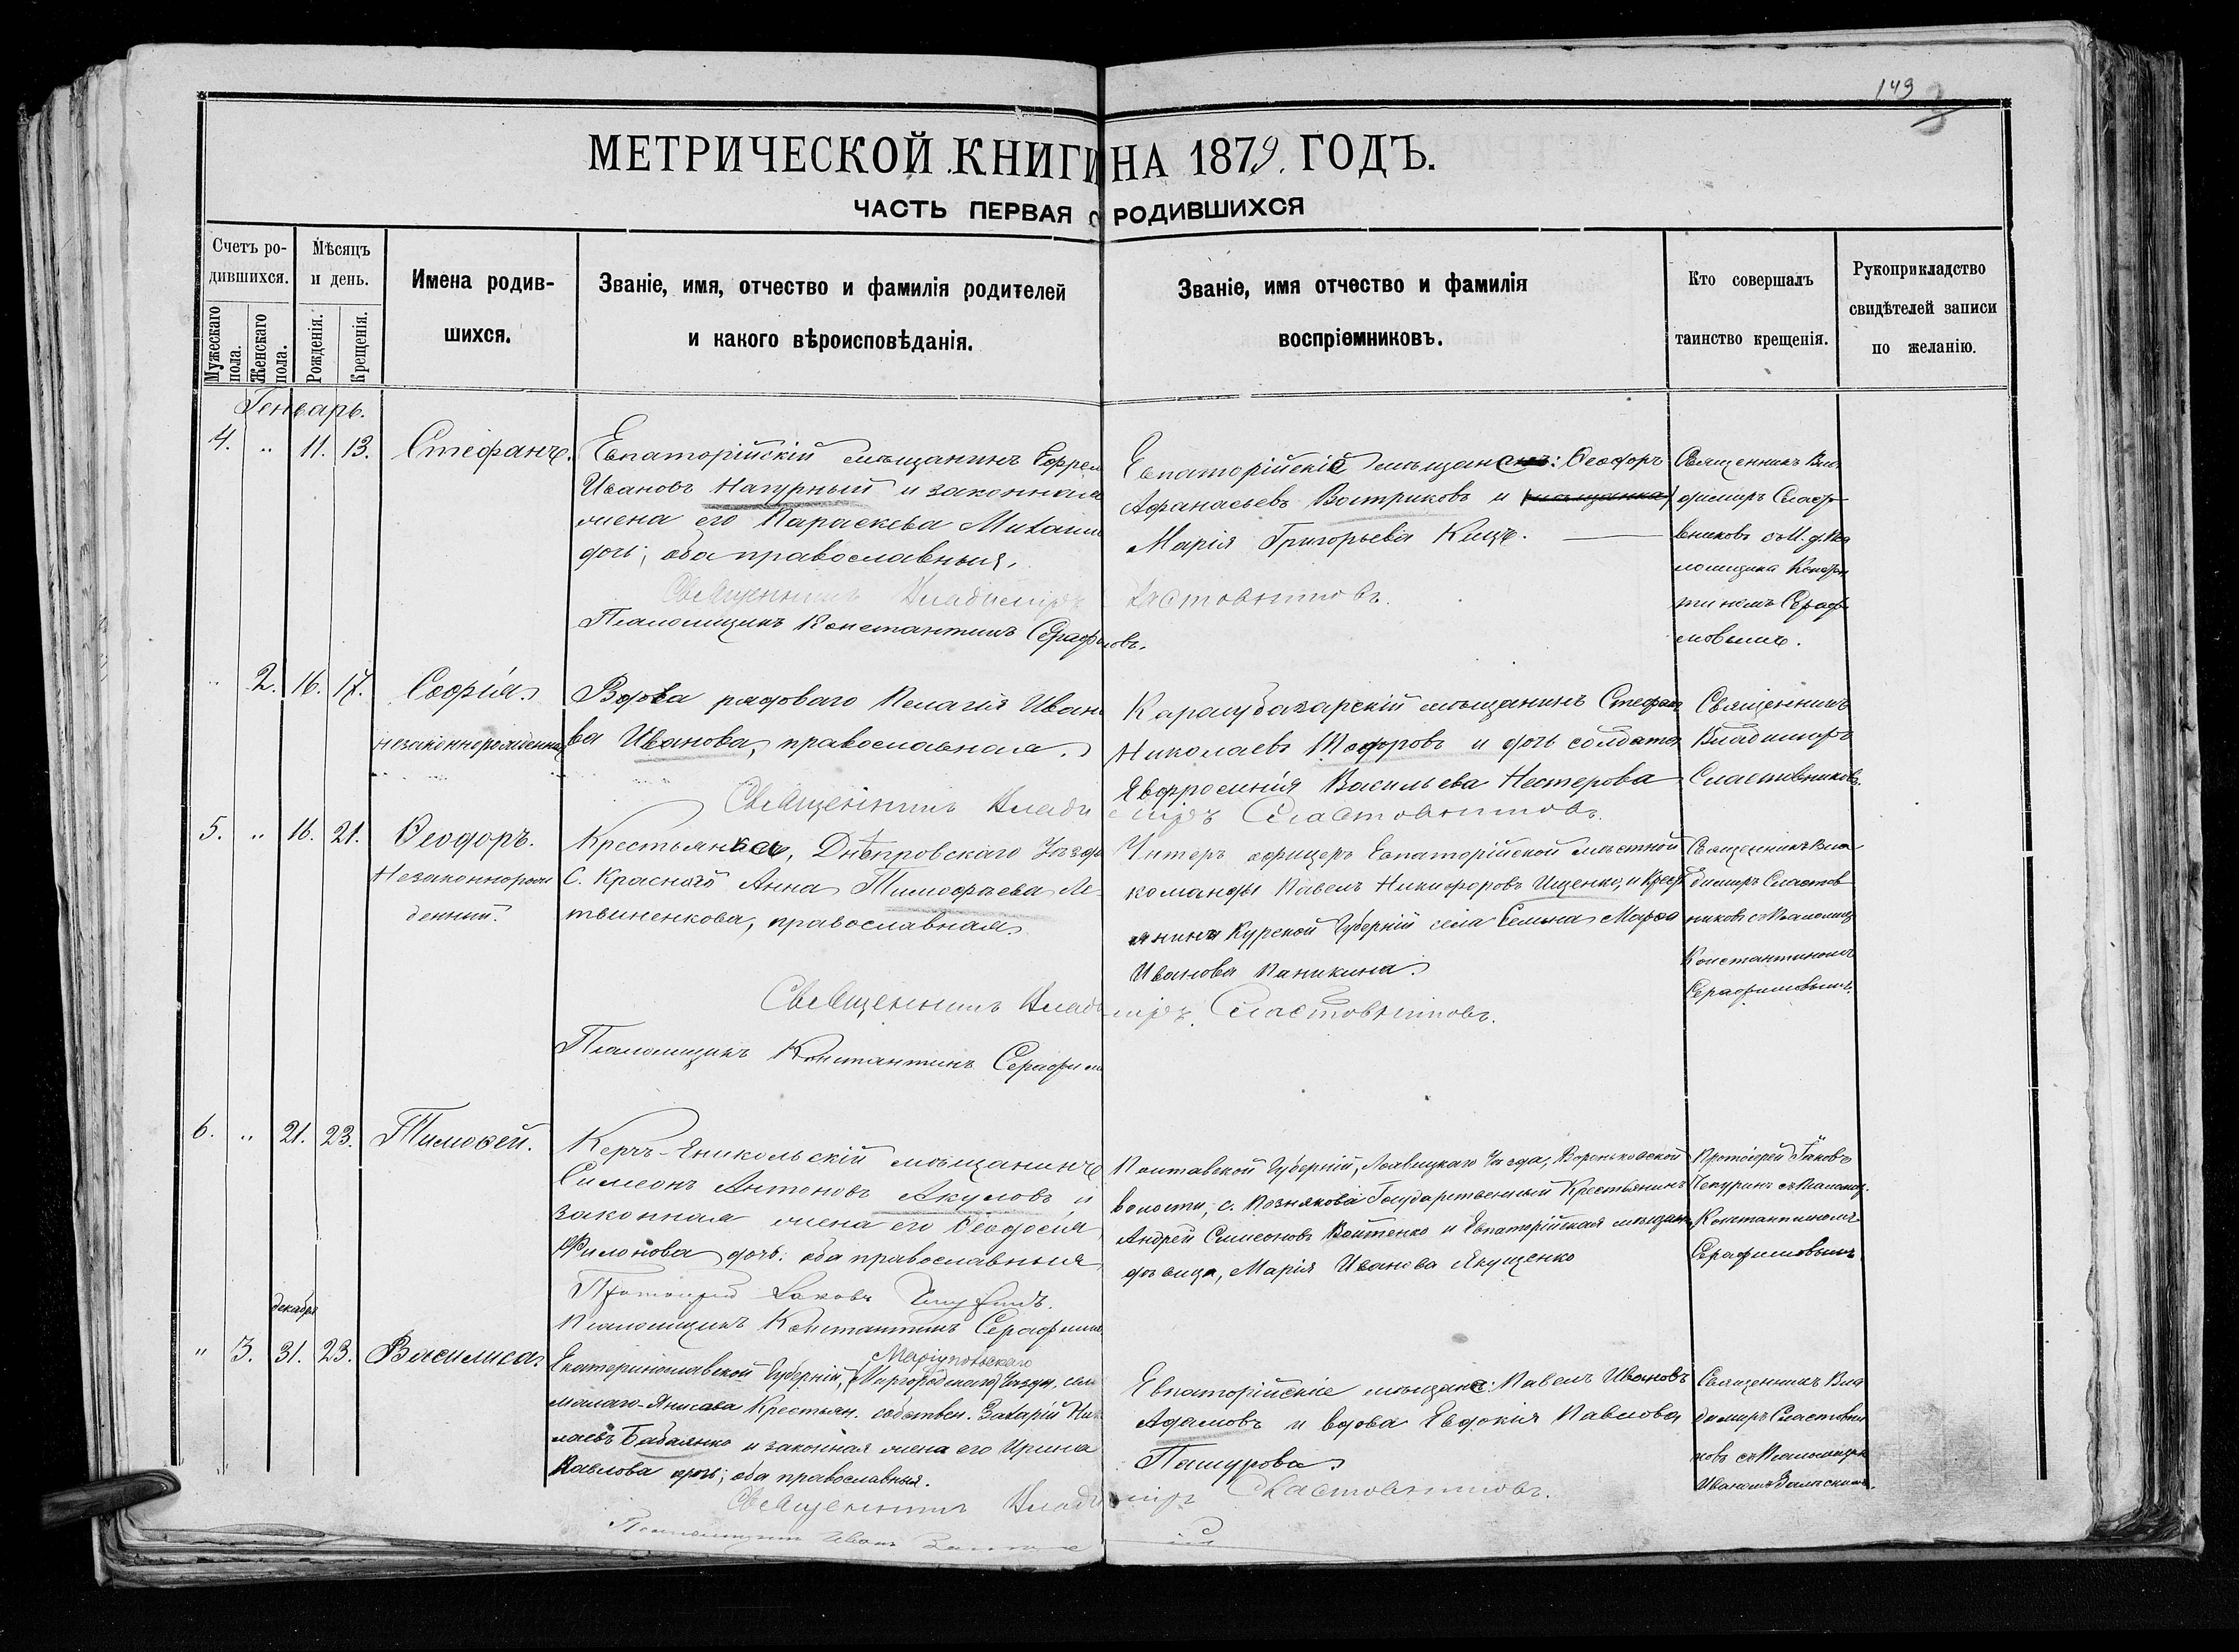 149
3
МЕТРИЧЕСКОЙ КНИГИ НА 1879. ГОДЪ.
ЧАСТЬ ПЕРВАЯ О РОДИВШИХСЯ
Счетъ ро-
дившихся.
Мужескаго
пола.
Женскаго
пола.
Мѣсяцъ
и день.
Рожденія.
Крещенія.
Имена родив-
шихся.
Званіе, имя, отчество и фамилія родителей
и какого вѣроисповѣданія.
Званіе, имя отчество и фамилія
воспріемниковъ.
Кто совершалъ
таинство крещенія.
Рукоприкладство
свидѣтелей записи
по желанію.
Генварь.
4. " 11. 13. Стефанъ.
Евпаторійскій мѣщанинъ Ефрем
Ивановъ Нагурный и законная
жена его Параскева Михаил
дочь; оба православныя.
Священникъ Владиміръ Сластовниковъ.
Псаломщикъ Константинъ Серафимовъ.
Евпаторійскіе мѣщане: Ѳеодоръ
Афанасьевъ Востриковъ и
Марія Григорьевна
Священникъ Вла
диміръ Сласто
вниковъ съ И. д. Пса
ломщика Констан
тиномъ Серафи
мовымъ.
" 2. 16. 17. Софія.
незаконнорожденная
Вдова рядоваго Пелагія Ивано
ва Иванова, православная.
Священникъ Владиміръ Сластовниковъ.
Карасубазарскій мѣщанинъ Стефанъ
Николаевъ Тодоровъ и дочь солдата
Явфросинія Васильева Нестерова
Священникъ
Владиміръ
Сластовниковъ.
5. " 16. 21. Ѳеодоръ.
Незаконнорож
денный.
Крестьянка, Днѣпровскаго Уѣзда
С. Краснаго Анна Тимофаева Ле-
твиненкова, православная.
Священникъ Владиміръ Сластовниковъ.
Псаломщикъ Константинъ Серафим
Унтеръ офицеръ Евпаторійской мѣстной
команды Павелъ Никифоровъ Ищенко, и Крест
янинка Курской Губерніи села Семена Марѳа
Иванова Паникина.
Священникъ Вла
диміръ Сластов
никовъ съ Псаломщ
Константиномъ
Серафимовымъ.
6. " 21. 23. Тимоѳей.
Керчь-Яникольскій мѣщанинъ
Симеонъ Антоновъ Акуловъ и
законная жена его Ѳеодосія
Филонова дочь: оба православныя
Протоіерей Іаковъ Чепуринъ.
Псаломщикъ Константинъ Серафим
Полтавской Губерніи, Лохвицкаго Уѣзда, Вороньковской
волости, с. Познякова Государственный Крестьянинъ
Андрей Симеоновъ Войтенко и Евпаторійская мѣщан
дѣвица, Марія Иванова Якущенко
Протоіерей Іаковъ
Чепуринъ съ Псаломщ.
Константиномъ
Серафимовымъ
декабря
" 3. 31. 23. Василиса.
Маріупольскаго
Екатеринославской Губерніи, (Миргородскаго) Уѣзда, села
малаго-Янисала Крестьян. собствен. Захарій Ник
лаевъ Бабаянко и законная жена его Ирина
Павлова дочь; оба православныя.
Священникъ Владиміръ Сластовниковъ.
Псаломщикъ Иванъ
Евпаторійскіе мѣщане: Павелъ Ивановъ
Адамовъ и вдова Евдокія Павлова
Пашурова.
Священникъ Вла
диміръ Сластовни
ковъ съ Псаломщик
Иваномъ Залѣскимъ.